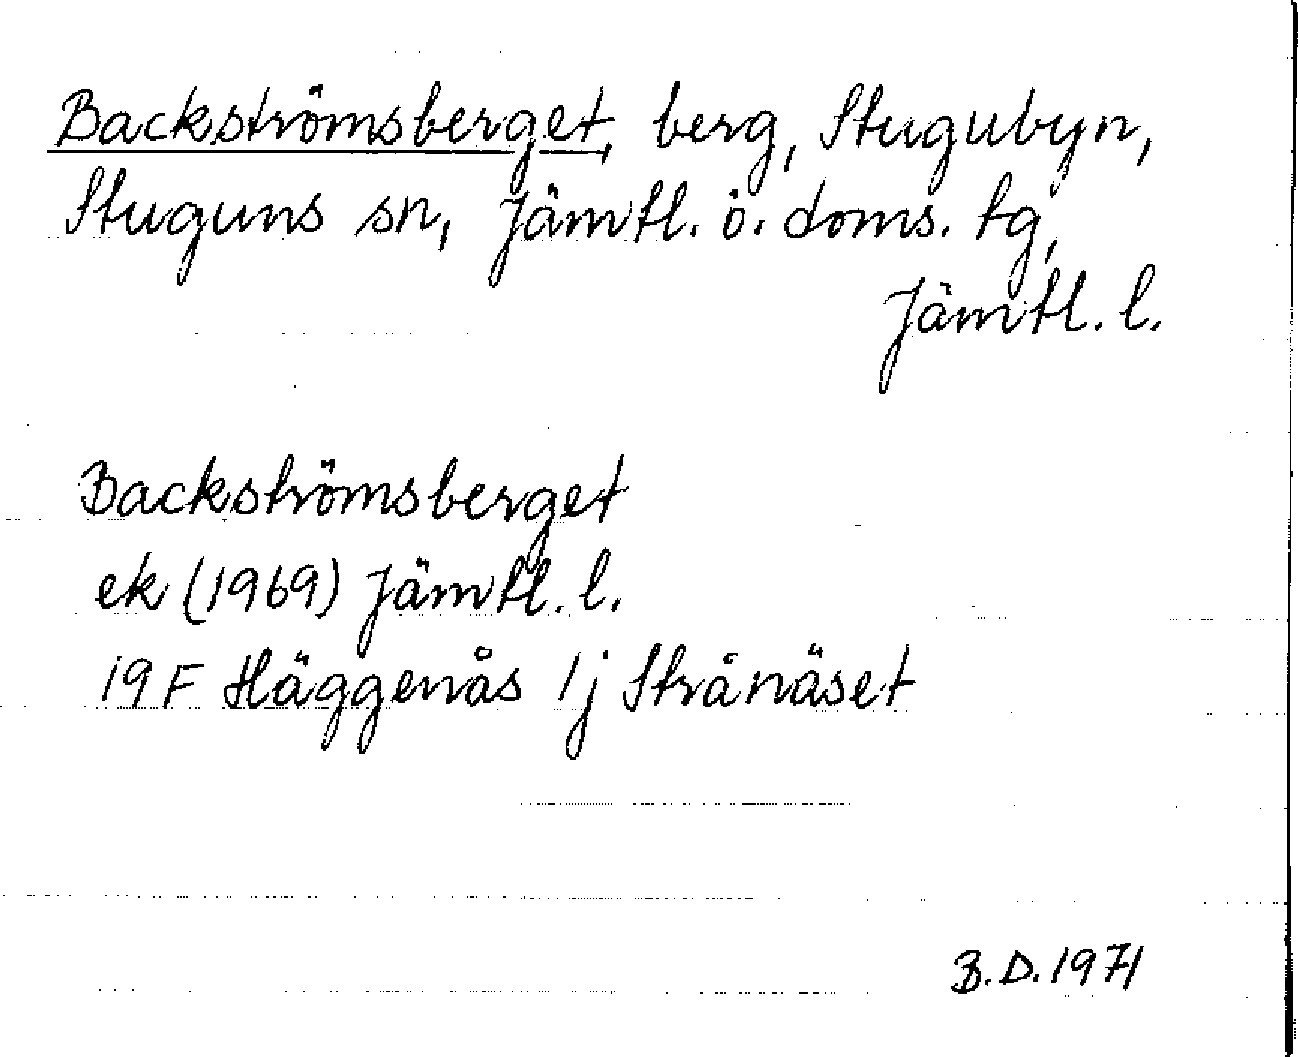 Backströmsberget, berg, Stugubyn,
Stuguns sn, Jämtl. ö. doms. tg,
Jämtl. l.
Backströmsberget
ek (1969) Jämtl. l.
19 F Häggenås 1j Strånäset
B.D. 1971